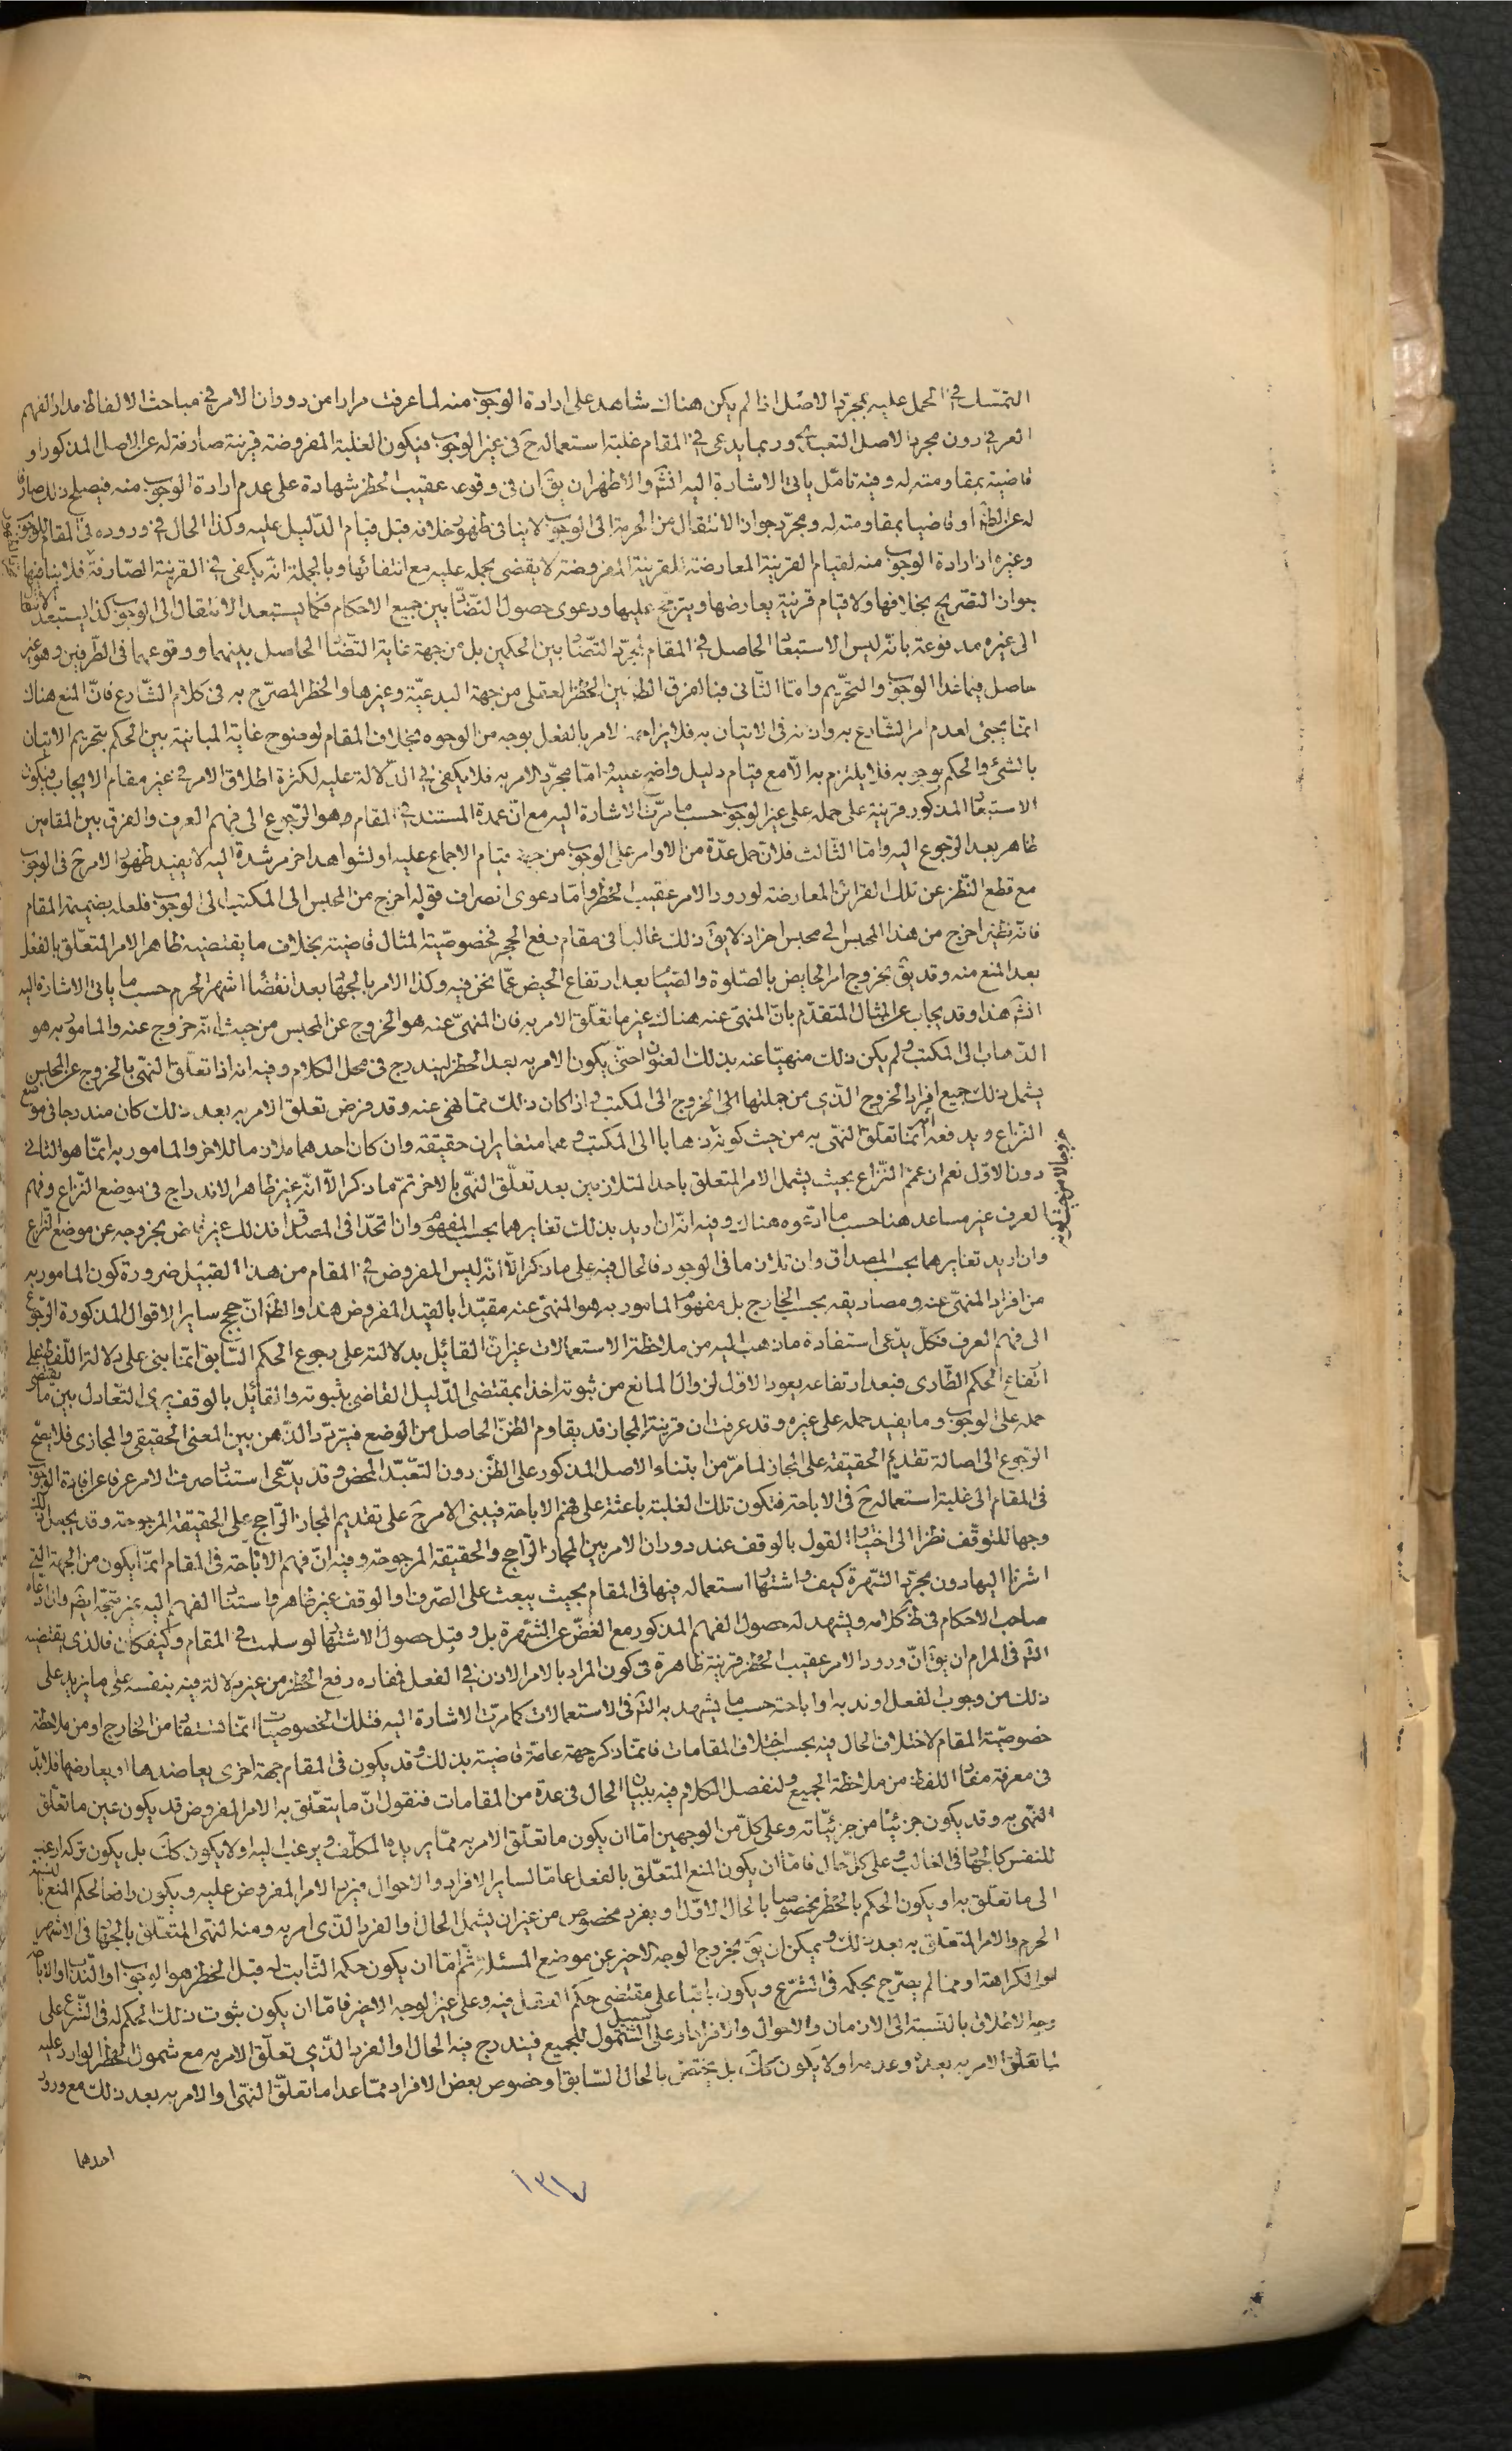 التمسّك في الحمل عليه بمجرّد الاصل اذا لم يكن هناك شاهد على ارادة الوجوب منه لما عرفت مرارا من دوران الامر في مباحث الالفاظ مدار الفهم
العرفي دون مجرد الاصل التعبدي وربما يدعى في المقام غلبة استعماله ح في غير الوجوب فيكون الغلبة المفروضة قرينة صارفة له عن الاصل المذكور او
قاضية بمقاومته له وفيه تامّل ياتي الاشارة اليه انشۤ والاظهر ان يقۤ ان في وقوعه عقيب الحظر شهادة على عدم ارادة الوجوب منه فيصلح ذلك صارفا
له عن الظۤ او قاضيا بمقاومته له ومجرّد جواز الانتقال من الحرمة الى الوجوب لا ينافي ظهور خلافه قبل قيام الدّليل عليه وكذا الحال في وروده في المقام للوجوب
وغيره اذ ارادة الوجوب منه لقيام القرينة المعارضة للقرينة المفروضة لا يقضي بحمله عليه مع انتفائها وبالجملة انّه يكفي في القرينة الصّارفة فلا ينافيها
جواز التصّريح بخلافها ولا قيام قرينة يعارضها ويترجّح عليها ودعوى حصول التضّاد بين جميع الاحكام فكما يستبعد الانتقال الى الوجوب كذا يستبعد الانتقال
الى غيره مدفوعة بانّه ليس الاستبعاد الحاصل في المقام لمجرّد التضّاد بين الحكمين بل من جهة غاية التضّاد الحاصل بينهما ووقوعهما في الطّرفين وهو غير
حاصل فيما عدا الوجوب والتحّريم وامّا الثّاني فبالفرق الظۤ بين الحظر العقلي من جهة البدعيّة وغيرها والحظر المصرّح به في كلام الشّارع فانّ المنع هناك
انمّا يجيئ لعدم امر الشّارع به واذنه في الاتيان به فلا يزاحمه الامر بالفعل بوجه من الوجوه بخلاف المقام لوضوح غاية المباينة بين الحكم بتحريم الاتيان
بالشئ والحكم بوجوبه فلا يلتزم به الاّ مع قيام دليل واضح عليه وامّا مجرّد الامر به فلا يكفي في الدّلالة عليه لكثرة اطلاق الامر في غير مقام الايجاب فيكون
الاستبعاد المذكور قرينة على حمله على غير الوجوب حسب ما مرّت الاشارة اليه مع انّ عمدة المستند في المقام هو الرّجوع الى فهم العرف والفرق بين المقامين
ظاهر بعد الرّجوع اليه وامّا الثّالث فلانّ حمل عدّة من الاوامر على الوجوب من جهة قيام الاجماع عليه او لشواهد اخر مرشدة اليه لا يفيد ظهور الامر ح في الوجوب
مع قطع النّظر عن تلك القرائن المعارضة لورود الامر عقيب الحظر وامّا دعوى انصراف قوله اخرج من المحبس الى المكتب الى الوجوب فلعله بضميمة المقام
فانّه نظير اخرج من هذا المحبس الى محبس اخر اذ لا يقۤ ذلك غالبا في مقام رفع الحجر فخصوصيّة المثال قاضية بخلاف ما يقتضيه ظاهر الامر المتعلّق بالفعل
بعد المنع منه وقد يقۤ بخروج امر الحايض بالصّلوة والصّيام بعد ارتفاع الحيض عمّا نحن فيه وكذا الامر بالجهاد بعد انقضاء اشهر الحرم حسب ما ياتي الاشارة اليه
انشۤ هذا وقد يجاب عن المثال المتقدّم بانّ المنهيّ عنه هناك غير ما تعلّق الامر به فانّ المنهيّ عنه هو الخروج عن المحبس من حيث انّه خروج عنه والمامور به هو
الذّهاب الى المكتب ولم يكن ذلك منهيّا عنه بذلك العنوان حتّى يكون الامر به بعد الحظر ليندرج في محل الكلام وفيه انه اذا تعلّق النّهي بالخروج عن المحبس
يشمل ذلك جميع افراد الخروج الّذي من جملتها الخروج الى المكتب واذا كان ذلك ممّا نهي عنه وقد فرض تعلّق الامر به بعد ذلك كان مندرجا في موضع
النّزاع ويدفعه انّه انمّا تعلّق النّهي به من حيث كونه ذهابا الى المكتب وهما متغايران حقيقة وان كان احدهما ملازما للاخر والمامور به انمّا هو الثاني
دون الاوّل نعم ان عمّم النّزاع بحيث يشمل الامر المتعلق باحد المتلازمين بعد تعلّق النّهي بالاخر تمّ ما ذكر الاّ انّه غير ظاهر الاندراج في موضع النّزاع وفهم
العرف غير مساعد هنا حسب ما ادّعوه هناك وفيه انّه ان اريد بذلك تغايرهما بحسب المفهوم وان اتحّدا في المصداق فذلك غير قاض بخروجه عن موضع النّزاع
وان اريد تغايرهما بحسب المصداق وان تلازما في الوجود فالحال فيه على ما ذكر الاّ انّه ليس المفروض في المقام من هذا القبيل ضرورة كون المامور به
من افراد المنهيّ عنه ومصاديقه بحسب الخارج بل مفهوم المامور به هو المنهيّ عنه مقيّدا بالقيد المفروض هذا والظۤ انّ حجج ساير الاقوال المذكورة الرّجوع
الى فهم العرف فكلّ يدّعي استفادة ما ذهب اليه من ملاحظة الاستعمالات غير انّ القائل بدلالته على رجوع الحكم السّابق انمّا بنى على دلالة اللّفظ على
ارتفاع الحكم الطّارى فبعد ارتفاعه يعود الاوّل لزوال المانع من ثبوته اخذا بمقتضى الدّليل القاضي بثبوته والقائل بالوقف يرى التعّادل بين ما يقتضي
حمله على الوجوب وما يفيد حمله على غيره وقد عرفت ان قرينة المجاز قد يقاوم الظنّ الحاصل من الوضع فيتردّد الذّهن بين المعنى الحقيقي والمجازي فلا يصحّ
الرّجوع الى اصالة تقديم الحقيقة على المجاز لما مرّ من ابتناء الاصل المذكور على الظّن دون التعّبّد المحض وقد يدّعى استناد صرف الامر عرفا عن افادة الوجوب
في المقام الى غلبة استعماله ح في الاباحة فتكون تلك الغلبة باعثة على فهم الاباحة فيبنى الامر ح على تقديم المجاز الرّاجح على الحقيقة المرجوحة وقد يجعل ذلك
وجها للتوقّف نظرا الى اختيار القول بالوقف عند دوران الامر بين المجاز الرّاجح والحقيقة المرجوحة وفيه انّ فهم الاباحة في المقام انمّا يكون من الجهة الّتي
اشرنا اليها دون مجرّد الشّهرة كيف واشتهار استعماله فيها في المقام بحيث يبعث على الصّرف او الوقف غير ظاهر واستناد الفهم اليه غير متّجه ايضۤ وان ادّعاه
صاحب الاحكام في ظۤ كلامه ويشهد له حصول الفهم المذكور مع الغضّ عن الشّهرة بل وقبل حصول الاشتهار لو سلمت في المقام وكيف كان فالذي يقتضيه
النّظۤر في المرام ان يقۤ انّ ورود الامر عقيب الحظر قرينة ظاهرة في كون المراد بالامر الاذن في الفعل فمفاده رفع الحظر من غير دلالة فيه بنفسه على ما يزيد على
ذلك من وجوب الفعل او ندبه او اباحته حسب ما يشهد به النّظۤر في الاستعمالات كما مرّت الاشارة اليه فتلك الخصوصيّات انمّا تستفاد من الخارج او من ملاحظة
خصوصيّة المقام لاختلاف الحال فيه بحسب اختلاف المقامات فما ذكر جهة عامّة قاضية بذلك وقد يكون في المقام جهة اخرى يعاضدها او يعارضها فلا بدّ
في معرفة مفاد اللفظ من ملاحظة الجميع ولنفصل الكلام فيه ببيان الحال في عدّة من المقامات فنقول انّ ما يتعّلق به الامر المفروض قد يكون عين ما تعلّق
النّهي به وقد يكون جزئيّا من جزئيّاته وعلى كلّ من الوجهين امّا ان يكون ما تعلّق الامر به ممّا يريده المكلّف ويرغب اليه اولا يكون ككۤ بل يكون تركه ارغب
للنفس كالجهاد في الغالب وعلى كلّ حال فامّا ان يكون المنع المتعلّق بالفعل عامّا لساير الافراد والاحوال فيرد الامر المفروض عليه ويكون رافعا لحكم المنع بالنسبة
الى ما تعلّق به او يكون الحكم بالحظر مخصوصا بالحال الاوّل او بفرد مخصوص من غير ان يشمل الحال والفرد الذّي امر به ومنه النهى المتعلّق بالجهاد في الاشهر
الحرم والامر المتعلّق به بعد ذلك ويمكن ان يقۤ بخروج الوجه الاخير عن موضع المسئلة ثمّ امّا ان يكون حكمه الثّابت له قبل الحظر هو الوجوب او النّدب او الاباحة
او الكراهة او ممّا لم يصرّح بحكمه في الشّرع ويكون باقيا على مقتضى حكم العقل فيه وعلى غير الوجه الاخير فامّا ان يكون ثبوت ذلك الحكم له في الشّرع على
وجه الاطلاق بالنّسبة الى الازمان والاحوال والافراد او على سبيل الشّمول للجميع فيندرج فيه الحال او الفرد الذّي تعلّق الامر به مع شمول الحظر الوارد عليه
لما تعلّق الامر به بعده وعدمه اولا يكون ككۤ بل يختصّ بالحال السّابق او خصوص بعض الافراد ممّا عدا ما تعلّق النّهي او الامر به بعد ذلك مع ورود
احدهما
١٣٧